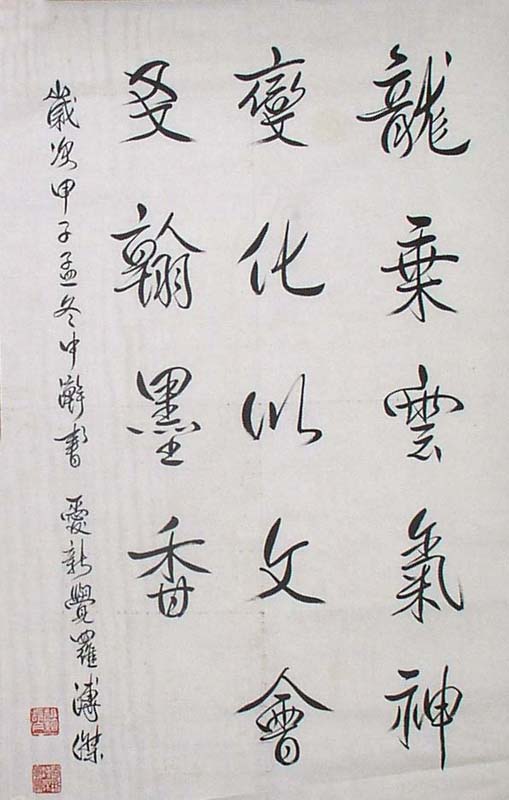 龍乘雲氣神
變化以文會
友翰墨香
歲次甲子孟冬中澣書 愛新覺羅溥傑